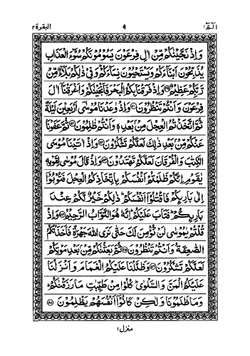 الٓمّٓ ١ 4 البقرة ٢
وَاِذْ نَجَّيْنٰكُمْ مِّنْ اٰلِ فِرْعَوْنَ يَسُوْمُوْنَكُمْ سُوْٓءَ الْعَذَابِ
يُذَبِّحُوْنَ اَبْنَآءَكُمْ وَيَسْتَحْيُوْنَ نِسَآءَكُمْ وَفِيْ ذٰلِكُمْ بَلَآءٌ مِّنْ
رَّبِّكُمْ عَظِيْمٌ ﴿۴۹﴾ وَاِذْ فَرَقْنَا بِكُمُ الْبَحْرَ فَاَنْجَيْنٰكُمْ وَاَغْرَقْنَآ اٰلَ
فِرْعَوْنَ وَاَنْتُمْ تَنْظُرُوْنَ ﴿۵۰﴾ وَاِذْ وٰعَدْنَا مُوْسٰٓى اَرْبَعِيْنَ لَيْلَةً
ثُمَّ اتَّخَذْتُمُ الْعِجْلَ مِنْۢ بَعْدِهٖ وَاَنْتُمْ ظٰلِمُوْنَ ﴿۵۱﴾ ثُمَّ عَفَوْنَا
عَنْكُمْ مِّنْۢ بَعْدِ ذٰلِكَ لَعَلَّكُمْ تَشْكُرُوْنَ ﴿۵۲﴾ وَاِذْ اٰتَيْنَا مُوْسَى
الْكِتٰبَ وَالْفُرْقَانَ لَعَلَّكُمْ تَهْتَدُوْنَ ﴿۵۳﴾ وَاِذْ قَالَ مُوْسٰى لِقَوْمِهٖ
يٰقَوْمِ اِنَّكُمْ ظَلَمْتُمْ اَنْفُسَكُمْ بِاتِّخَاذِكُمُ الْعِجْلَ فَتُوْبُوْٓا
اِلٰى بَارِئِكُمْ فَاقْتُلُوْٓا اَنْفُسَكُمْ ذٰلِكُمْ خَيْرٌ لَّكُمْ عِنْدَ
بَارِئِكُمْ فَتَابَ عَلَيْكُمْ اِنَّهٗ هُوَ التَّوَّابُ الرَّحِيْمُ ﴿۵۴﴾ وَاِذْ
قُلْتُمْ يٰمُوْسٰى لَنْ نُّؤْمِنَ لَكَ حَتّٰى نَرَى اللّٰهَ جَهْرَةً فَاَخَذَتْكُمُ
الصّٰعِقَةُ وَاَنْتُمْ تَنْظُرُوْنَ ﴿۵۵﴾ ثُمَّ بَعَثْنٰكُمْ مِّنْۢ بَعْدِ مَوْتِكُمْ
لَعَلَّكُمْ تَشْكُرُوْنَ ﴿۵۶﴾ وَظَلَّلْنَا عَلَيْكُمُ الْغَمَامَ وَاَنْزَلْنَا
عَلَيْكُمُ الْمَنَّ وَالسَّلْوٰى كُلُوْا مِنْ طَيِّبٰتِ مَا رَزَقْنٰكُمْ
وَمَا ظَلَمُوْنَا وَلٰكِنْ كَانُوْٓا اَنْفُسَهُمْ يَظْلِمُوْنَ ﴿۵۷﴾
منزل ١